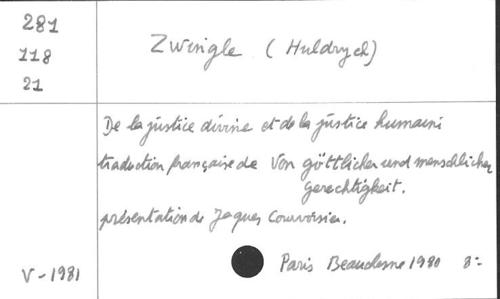 281
118
21
Zwingle (Huldrych)
De la justice divine et de la justice humaine
traduction française de Von göttlicher und menschlicher
Gerechtigkeit.
présentation de Jaques Courvoisier.
V-1981
Paris Beauchesne 1980 8=